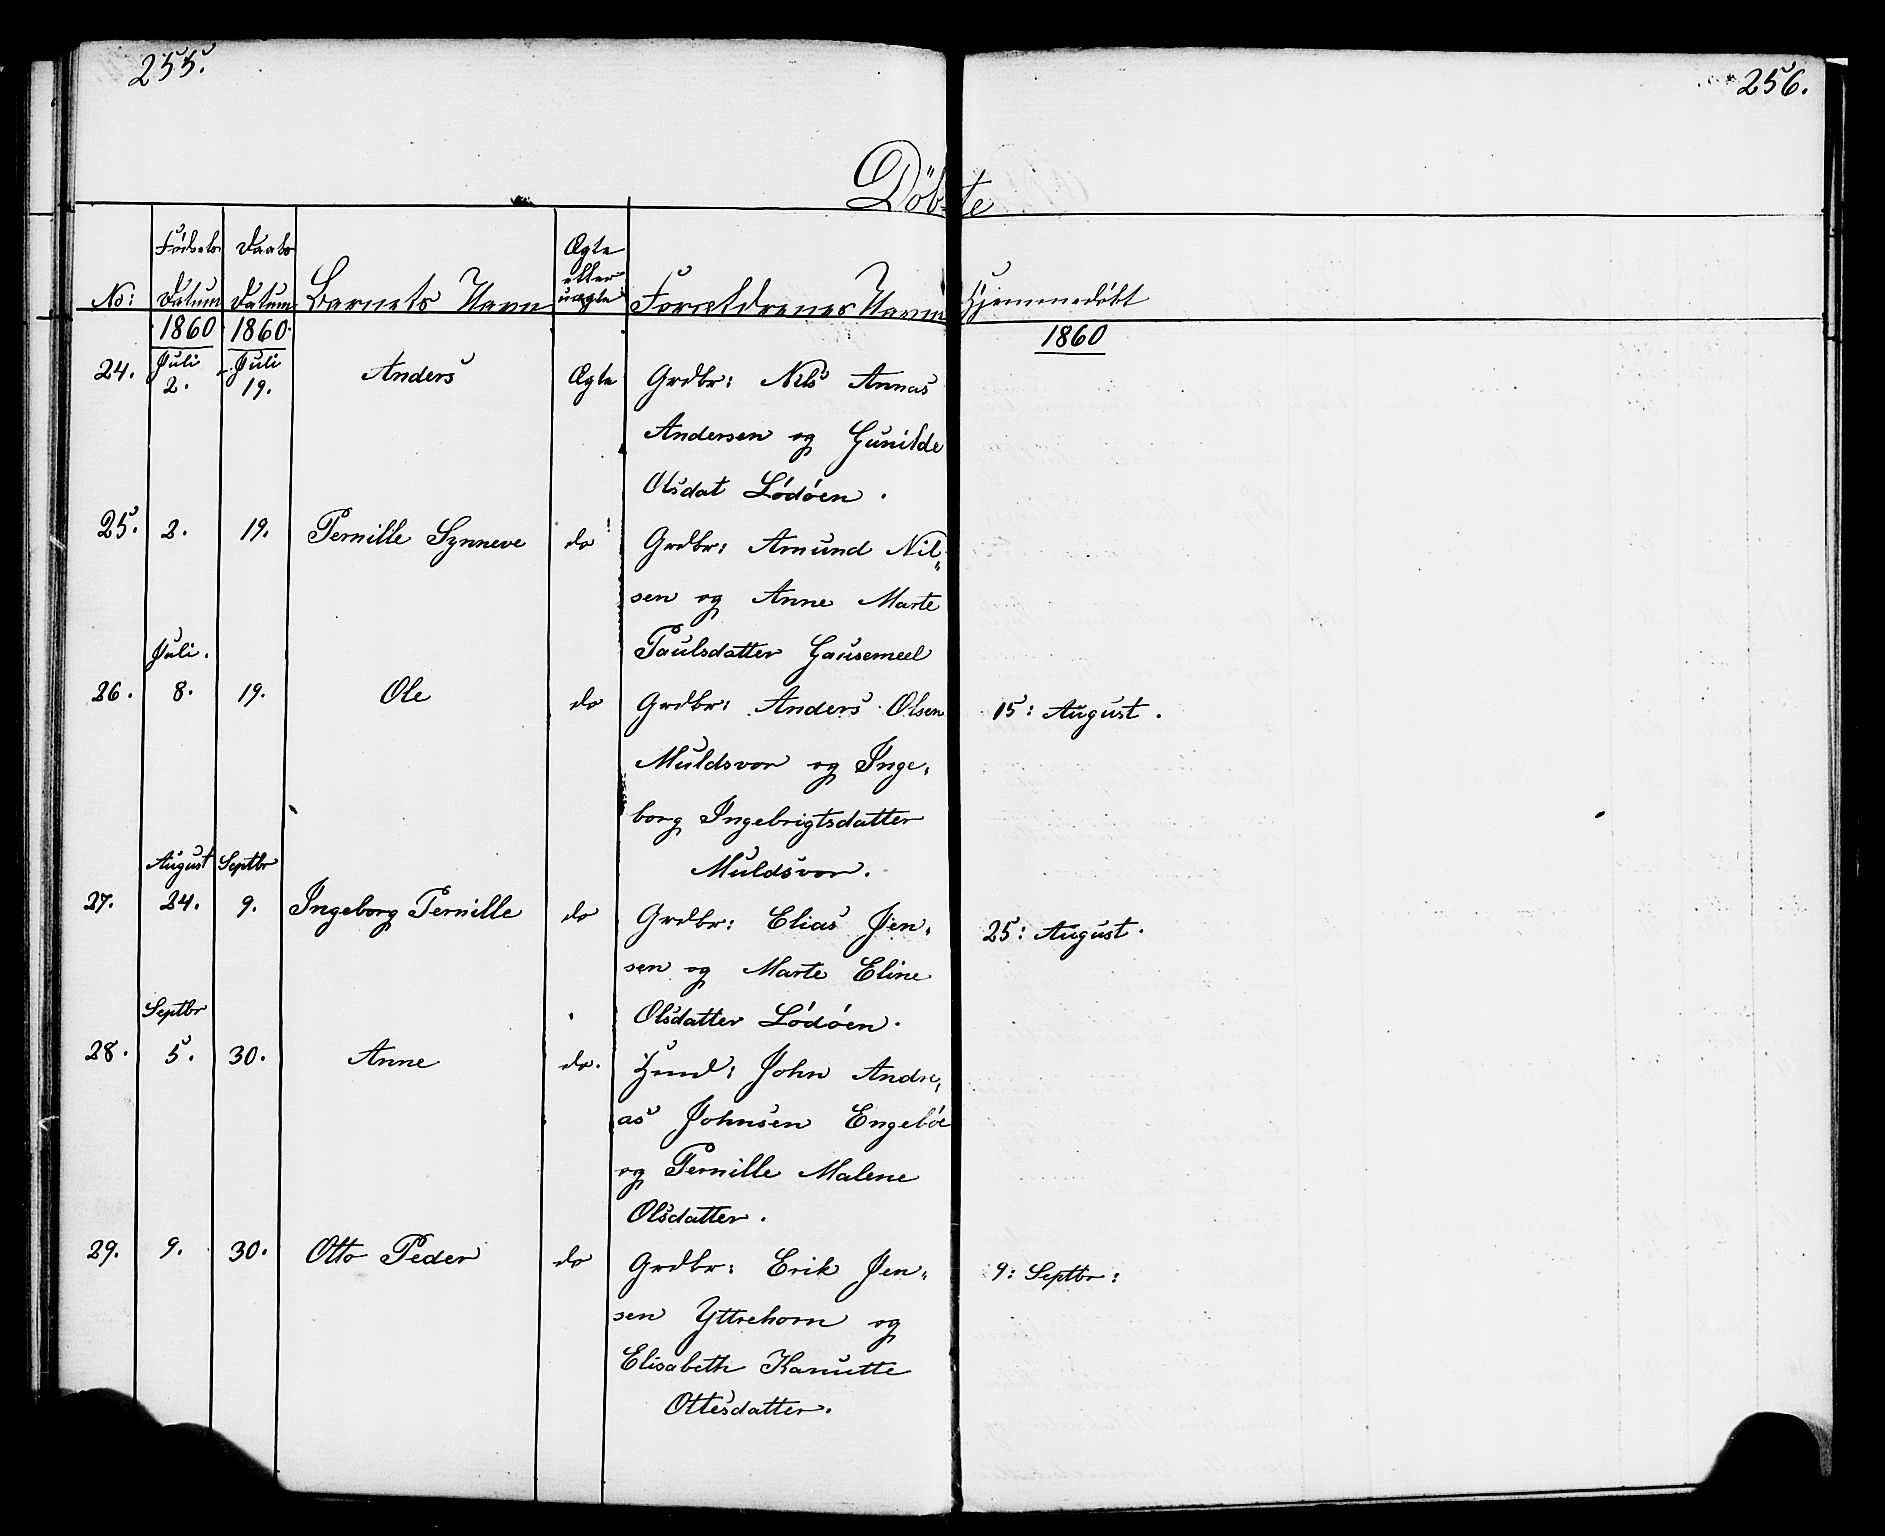 255.
256.
Döbte
No:
Födsels Datum
Daabs Datum
Barnets Navn
Ægte eller uægte
Forældrenes Navne
Hjemmedöbt
1860
1860.
1860
24. Juli 2. Juli 19. Anders Ægte Grdbr: Nils Annas
Andersen og Gunilde
Olsdat Lödöen.
25. 2. 19. Pernille Synneve do Grdbr: Amund Nil„
sen og Anne Marte
Paulsdatter Gausemeel
Juli.
26. 8. 19. Ole do Grdbr: Anders Olsen 15: August.
Muldsvor og Inge„
borg Ingebrigtsdatter
Muldsvor.
August Septbr
27. 24. 9. Ingeborg Pernille do Grdbr: Elias Jen„ 25: August.
sen og Marte Eline
Olsdatter Lödöen.
Septbr
28. 5. 30. Anne do. Huusm: John Andre„
as Johnsen Engeböe
og Pernille Malene
Olsdatter.
29. 9. 30. Otto Peder do Grdbr: Erik Jen„ 9: Septbr:
sen Yttrehorn og
Elisabeth Kanutte
Ottesdatter.